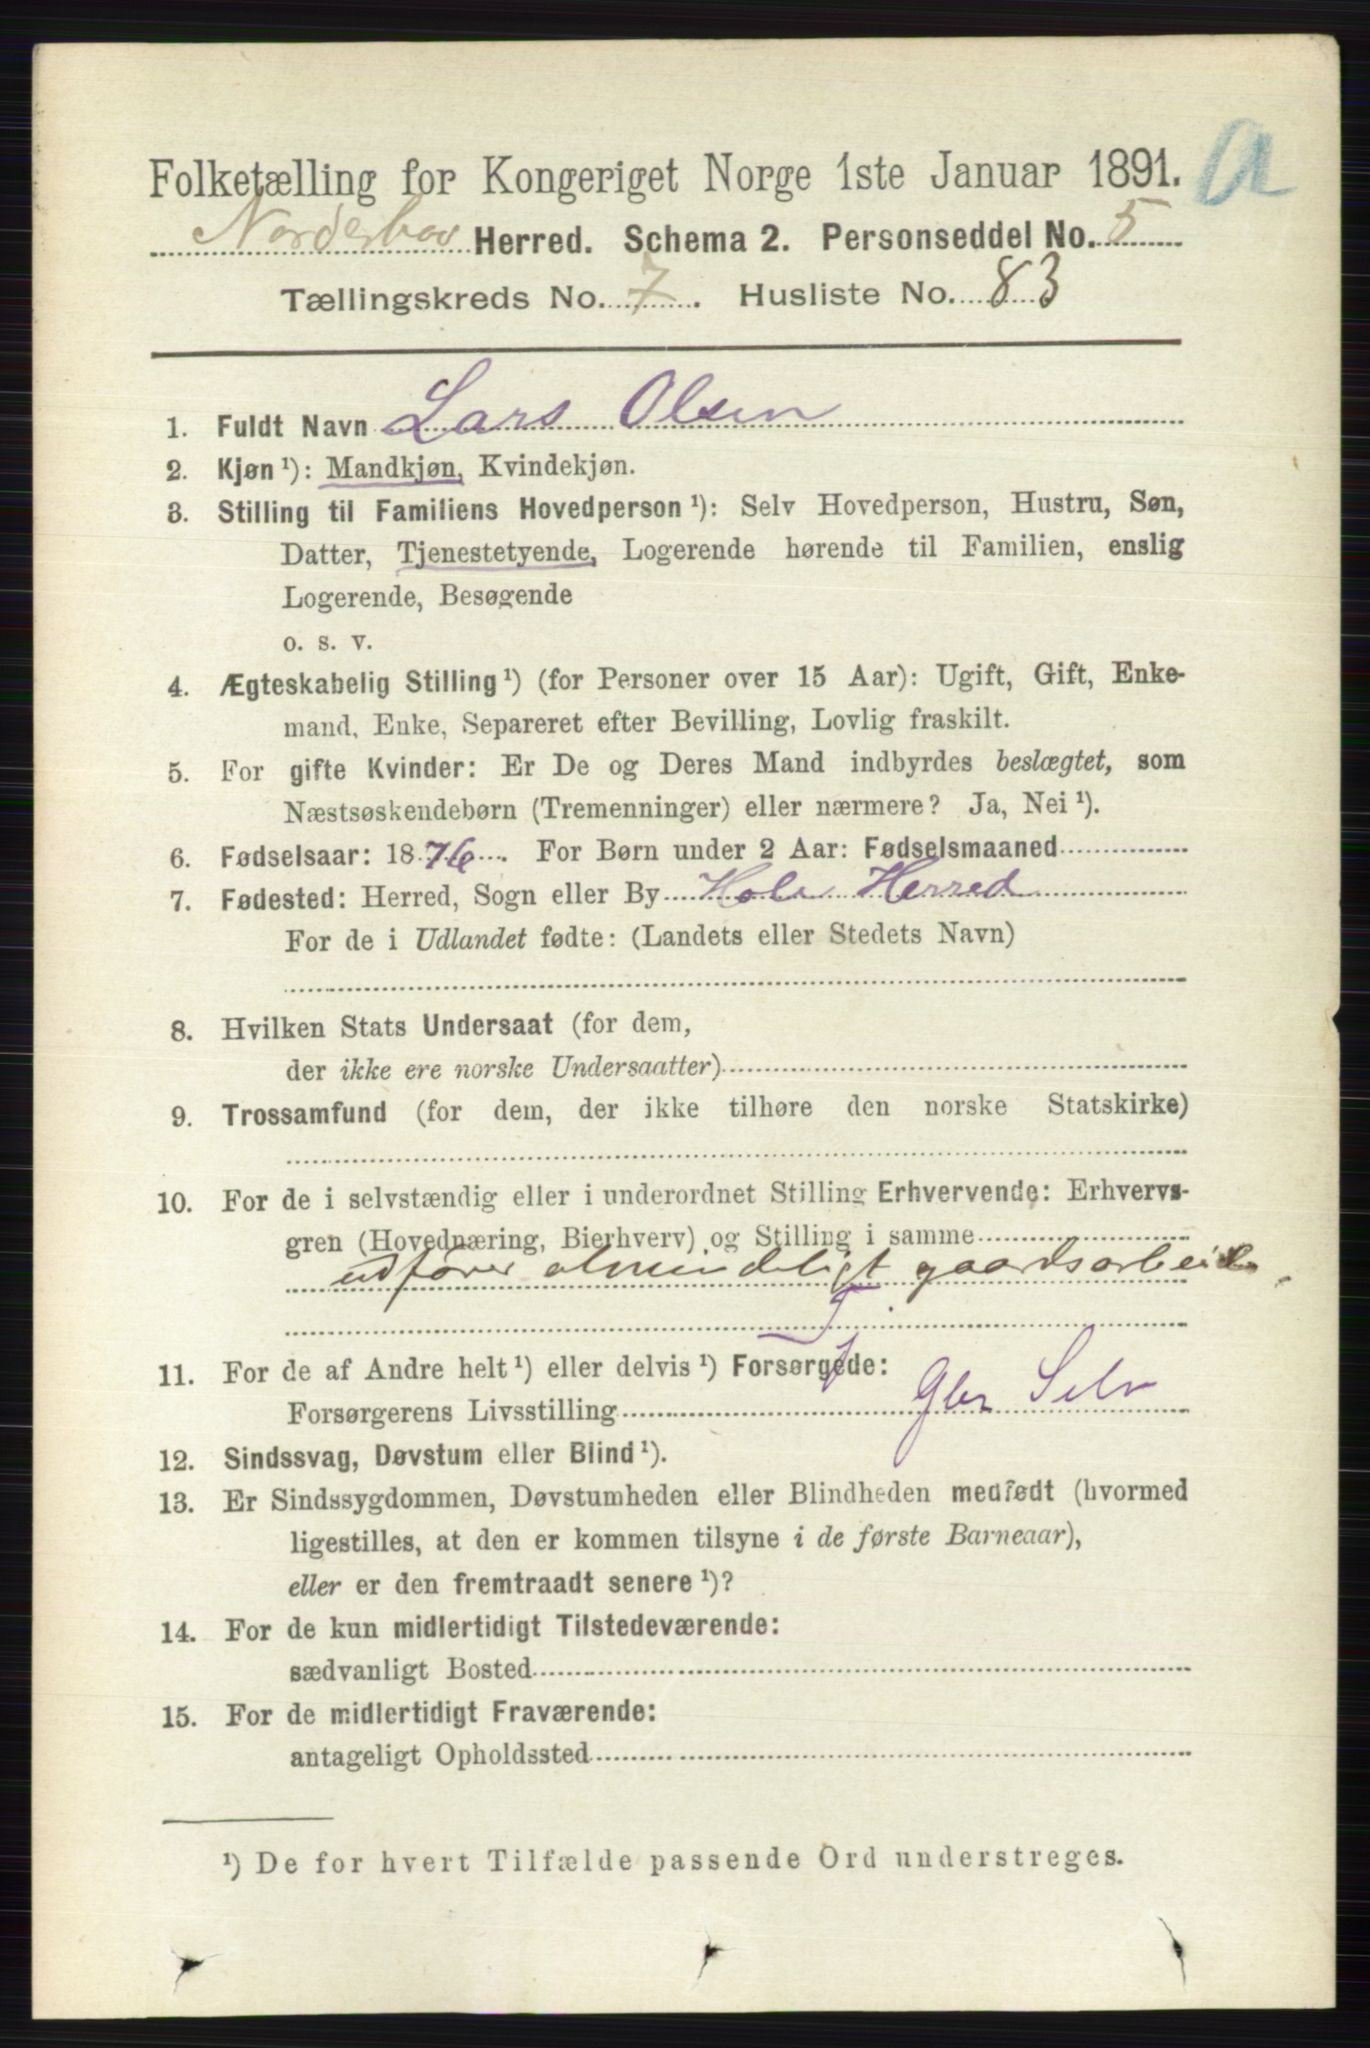 Folketælling for Kongeriget Norge 1ste Januar 1891. a
Norderhov Herred. Schema 2. Personseddel No. 5
Tællingskreds No. 7. Husliste No. 83
1. Fuldt Navn Lars Olsen
2. Kjøn ¹): Mandkjøn, Kvindekjøn.
3. Stilling til Familiens Hovedperson ¹): Selv Hovedperson, Hustru, Søn,
Datter, Tjenestetyende, Logerende hørende til Familien, enslig
Logerende, Besøgende
o. s. v.
4. Ægteskabelig Stilling ¹) (for Personer over 15 Aar): Ugift, Gift, Enke-
mand, Enke, Separeret efter Bevilling, Lovlig fraskilt.
5. For gifte Kvinder: Er De og Deres Mand indbyrdes beslægtet, som
Næstsøskendebørn (Tremenninger) eller nærmere? Ja, Nei ¹).
6. Fødselsaar: 1876. For Børn under 2 Aar: Fødselsmaaned
7. Fødested: Herred, Sogn eller By Hole Herred
For de i Udlandet fødte: (Landets eller Stedets Navn)
8. Hvilken Stats Undersaat (for dem,
der ikke ere norske Undersaatter)
9. Trossamfund (for dem, der ikke tilhøre den norske Statskirke)
10. For de i selvstændig eller i underordnet Stilling Erhvervende: Erhvervs-
gren (Hovednæring, Bierhverv) og Stilling i samme
udfører almindeligt gaardsarbeide
11. For de af Andre helt ¹) eller delvis ¹) Forsørgede:
Forsørgerens Livsstilling Gbr Selv
12. Sindssvag, Døvstum eller Blind ¹).
13. Er Sindssygdommen, Døvstumheden eller Blindheden medfødt (hvormed
ligestilles, at den er kommen tilsyne i de første Barneaar),
eller er den fremtraadt senere ¹)?
14. For de kun midlertidigt Tilstedeværende:
sædvanligt Bosted
15. For de midlertidigt Fraværende:
antageligt Opholdssted
¹) De for hvert Tilfælde passende Ord understreges.